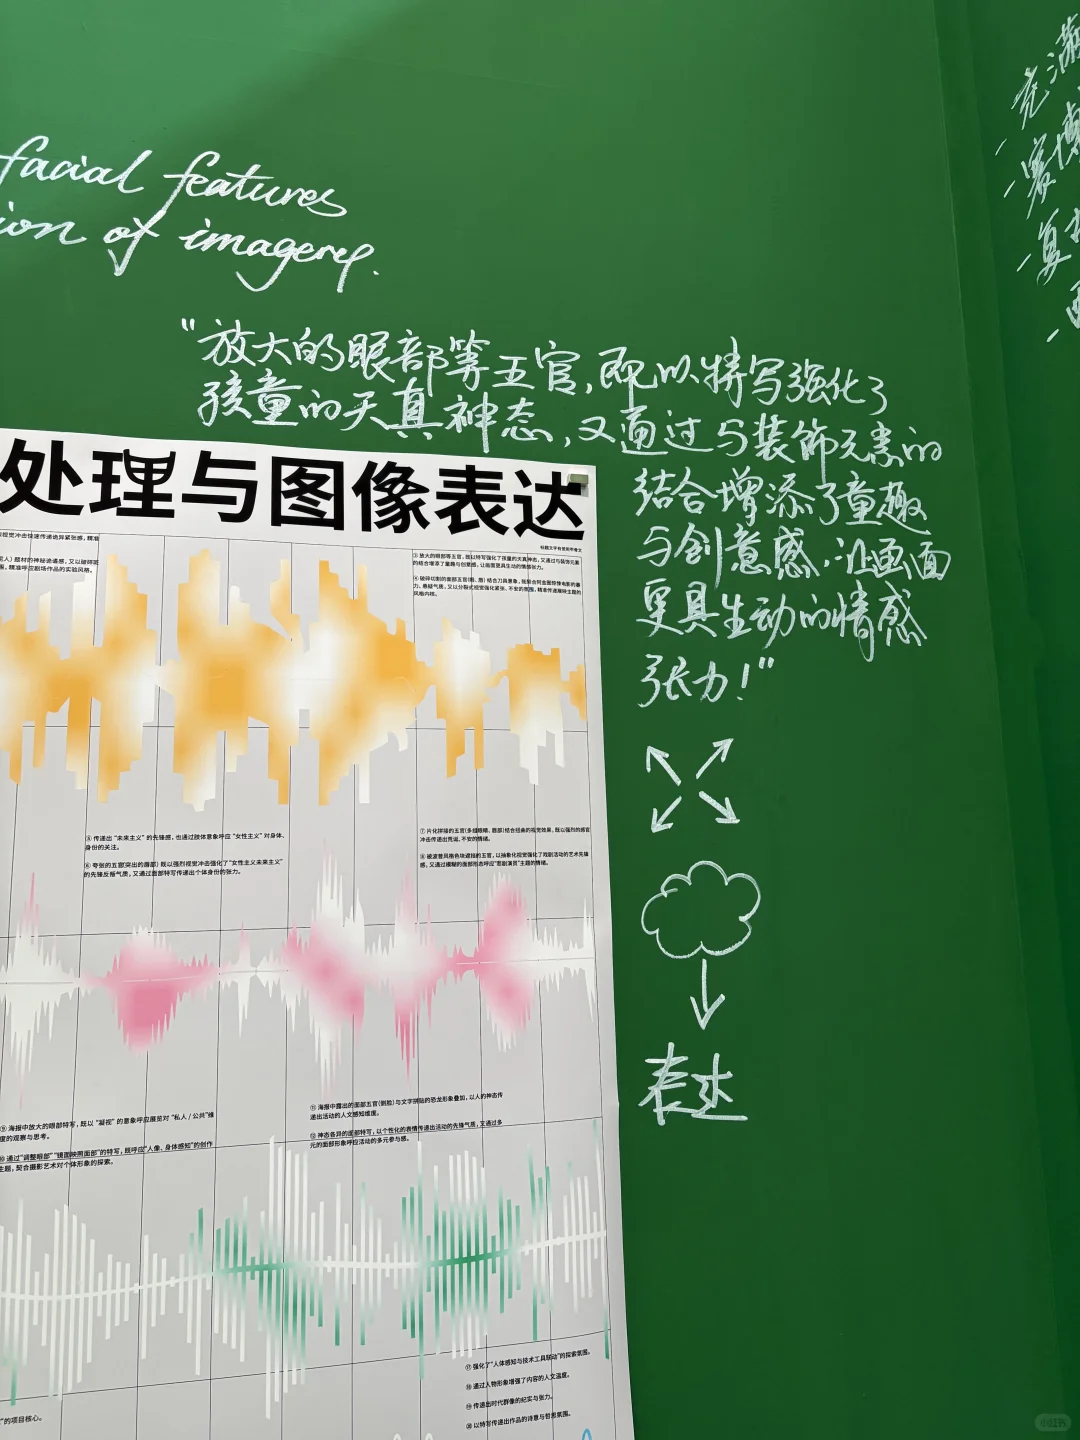 facial features
ion of imagery.
"放大的眼部等五官,即以特写强化了
孩童的天真神态,又通过与装饰元素的
结合增添了童趣
与创意感,让画面
更具生动的情感
张力!"
表达
充满
赛博
处理与图像表达
③ 放大的眼部等五官,既以特写强化了孩童的天真神态,又通过与装饰元素
的结合增添了童趣与创意感,让画面更具生动的情感张力。
⑤ 传递出“未来主义”的先锋感,也通过肢体意象呼应“女性主义”对身体、
身份的关注。
⑥ 夸张的五官(突出的唇部)既以强烈视觉冲击强化了“女性主义未来主义”
的先锋反叛气质,又通过面部特写传递出个体身份的张力。
⑦ 片化拼接的五官(多组眼睛、唇部)结合扭曲的视觉效果,既以强烈的感官
冲击传递出荒诞、不安的情绪。
⑨ 海报中放大的眼部特写,既以“凝视”的意象呼应展览对“私人 / 公共”维
度的观察与思考。
⑩ 通过“调整眼部”“镜面映照面部”的特写,既呼应“人像、身体感知”的创作
主题,契合摄影艺术对个体形象的探索。
⑪ 海报中露出的面部五官(侧脸)与文字拼贴的恐龙形象叠加,以人的神态传
递出活动的人文感知维度。
⑫ 神态各异的面部特写,以个性化的表情传递出活动的先锋气质,又通过多
元的面部形象呼应活动的多元参与感。
⑰ 强化了“人体感知与技术工具联动”的探索氛围。
⑱ 通过人物形象增强了内容的人文温度。
⑲ 传递出时代群像的纪实与张力。
⑳ 以特写传递出作品的诗意与哲思氛围。
”的项目核心。
小红书